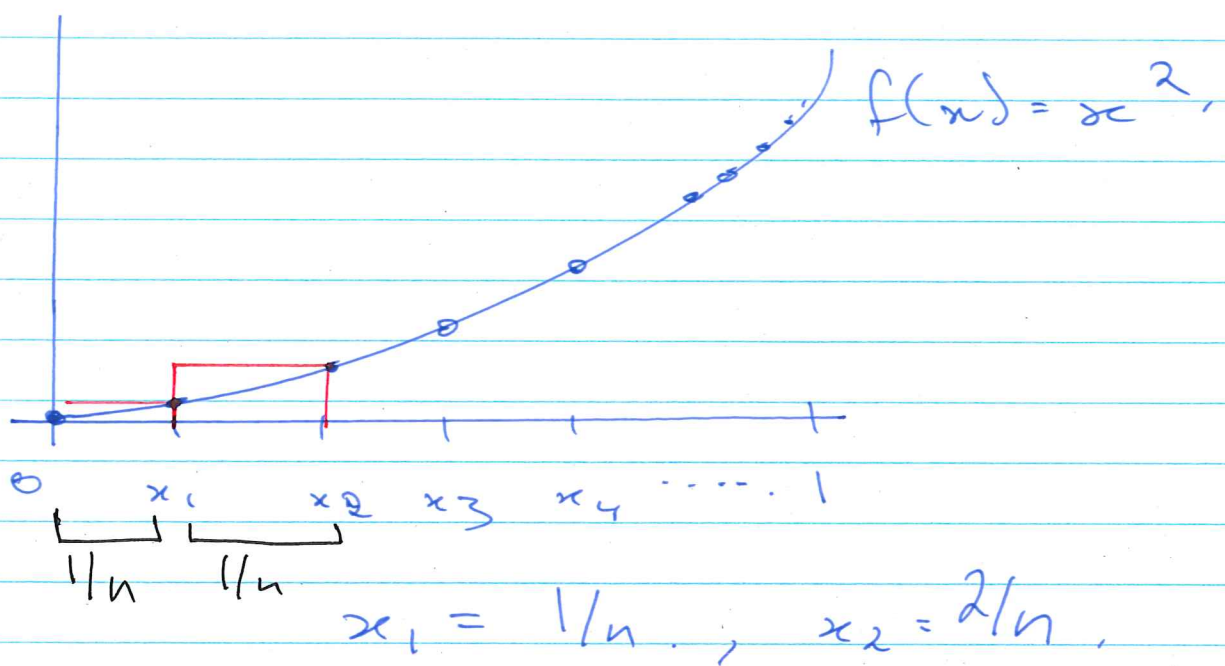 f(x) = x²,
0 x₁ x₂ x₃ x₄ ..... 1
1/n 1/n
x₁ = 1/n . , x₂ = 2/n ,